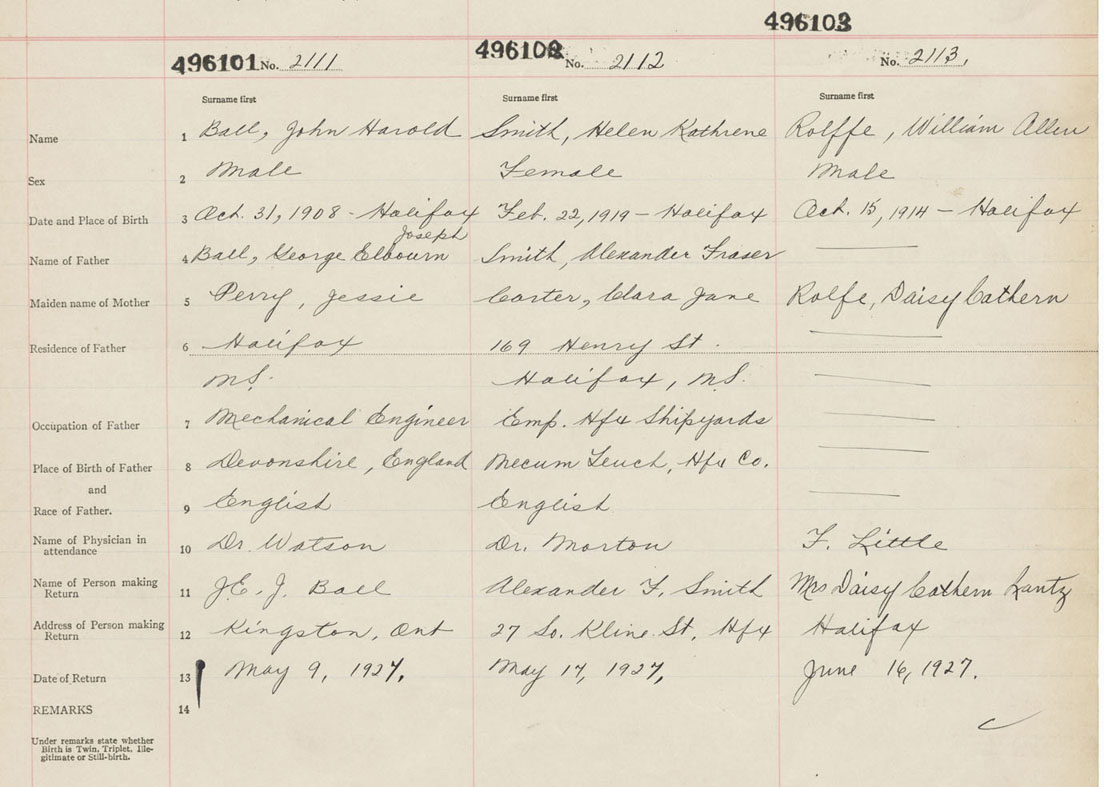 496103
496101 No. 2111 496102 No. 2112 No. 2113,
Surname first Surname first Surname first
Name 1 Ball, John Harold Smith, Helen Kathrene Rolffe, William Allen
Sex 2 Male Female Male
Date and Place of Birth 3 Oct. 31, 1908 - Halifax Feb. 22, 1919 - Halifax Oct. 15, 1914 - Halifax
Joseph
Name of Father 4 Ball, George Elbourn Smith, Alexander Fraser
Maiden name of Mother 5 Perry, Jessie Carter, Clara Jane Rolfe, Daisy Cathern
Residence of Father 6 Halifax 169 Henry St.
N.S. Halifax, N.S.
Occupation of Father 7 Mechanical Engineer Emp. Hfx Shipyards
Place of Birth of Father 8 Devonshire, England Hfx Co.
and
Race of Father. 9 English English
Name of Physician in
attendance 10 Dr. Watson Dr. Morton F. Little
Name of Person making
Return 11 J.E.J. Ball Alexander F. Smith Mrs Daisy Cathern Lantz
Address of Person making
Return 12 Kingston, Ont 27 So. Kline St, Hfx Halifax
Date of Return 13 May 9, 1927. May 17, 1927, June 16, 1927.
REMARKS 14
Under remarks state whether
Birth is Twin, Triplet, Ille-
gitimate or Still-birth.